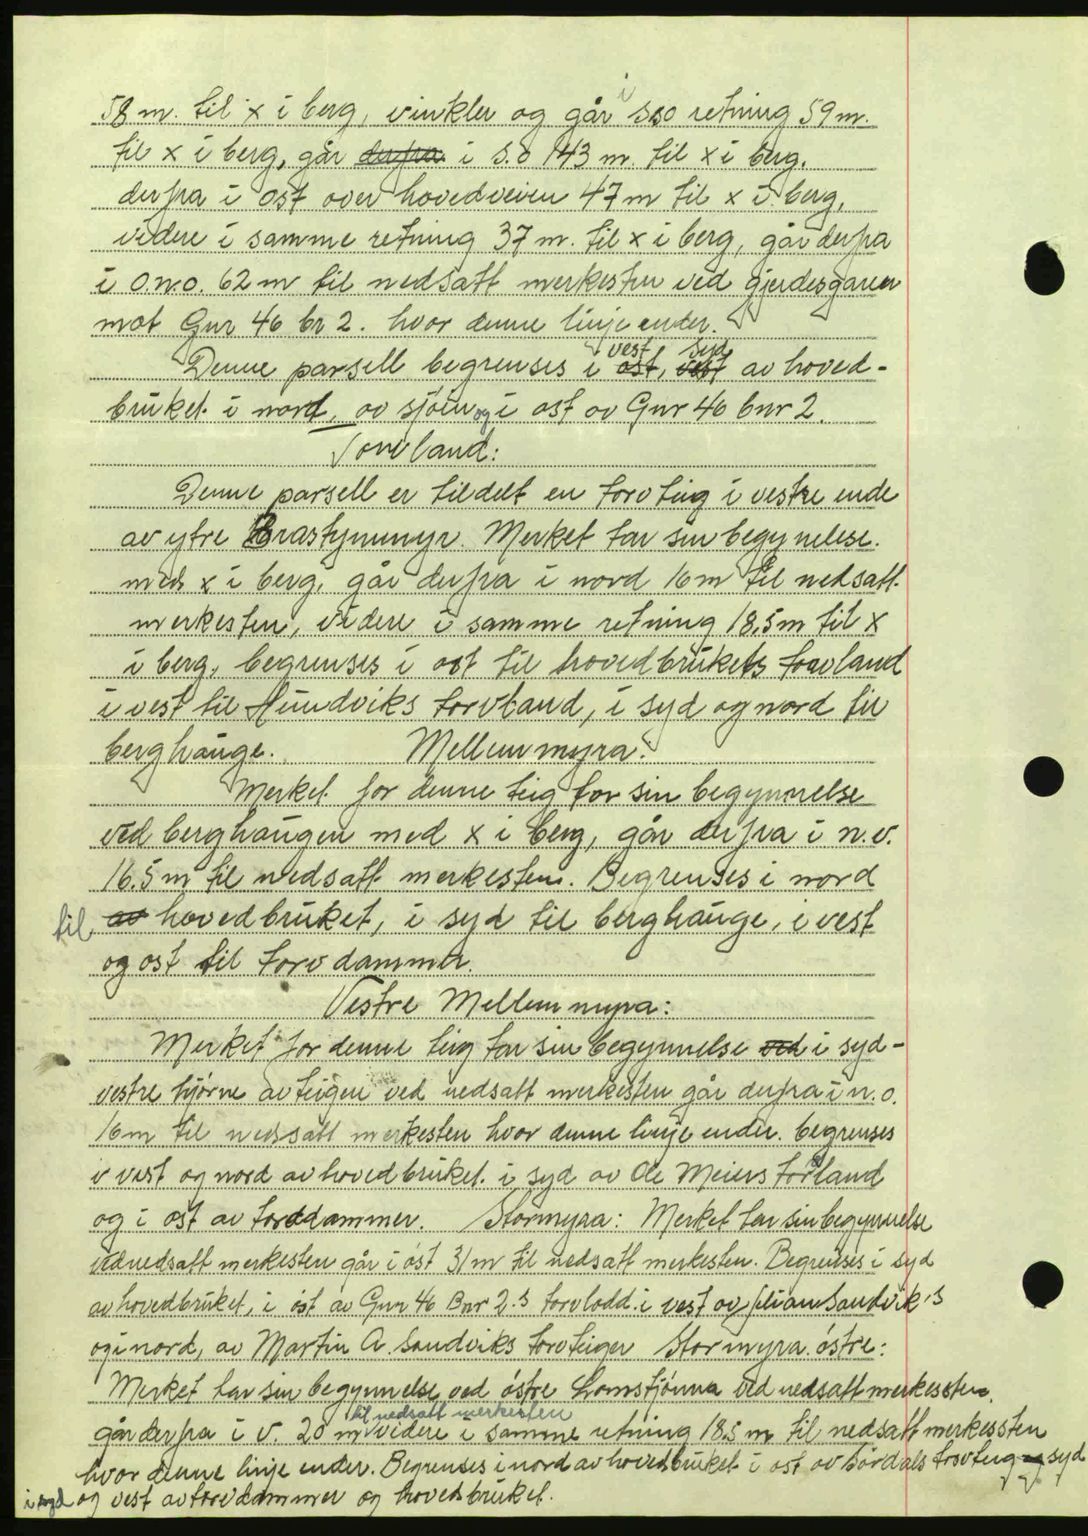 58 m. til x i berg, vinkler og går i sso retning 59 m.
til x i berg, går derfra i s.o 143 m. til x i berg.
derfra i ost over hovedveien 47 m til x i berg,
videre i samme retning 37 m. til x i berg, går derfra
i o.n.o. 62 m til nedsatt merkesten ved gjerdesgaren
mot Gnr 46 br 2. hvor denne linje ender.
Denne parsell begrenses i vest, syd av hoved-
bruket i nord, av sjøen og i ost av Gnr 46 bnr 2.
Torvland:
Denne parsell er tildelt en torvteig i vestre ende
av ytre Brastynmyr. Merket tar sin begynnelse.
med x i berg, går derfra i nord 16 m til nedsatt
merkesten, videre i samme retning 18,5 m til x
i berg, begrenses i ost til hovedbrukets torvland
i vest til Hundviks torvland, i syd og nord til
berghauge. Mellemmyra:
Merket for denne teig tar sin begynnelse
ved berghaugen med x i berg, går derfra i n.v.
16.5 m til nedsatt merkesten. Begrenses i nord
til av hovedbruket, i syd til berghauge, i vest
og ost til torvdammer.
Vestre Mellemmyra:
Merket for denne teig tar sin begynnelse ved i syd-
vestre hjørne av teigen ved nedsatt merkesten går derfra i n.o.
16 m til nedsatt merkesten hvor denne linje ender. begrenses
i vest og nord av hovedbruket. i syd av Ole Meiers torvland
og i ost av torvdammer. Stormyra: Merket tar sin begynnelse
ved nedsatt merkesten går i øst 31 m til nedsatt merkesten. Begrenses i syd
av hovedbruket, i øst av Gnr 46 Bnr 2.s torvlodd. i vest av Sandvik's
og i nord, av Martin A. Sandviks torvteiger Stormyra østre:
Merket tar sin begynnelse ved østre Lomstjønna ved nedsatt merkessten,
går derfra i v. 20 m til nedsatt merkesten videre i samme retning 18.5 m til nedsatt merkessten
hvor denne linje ender. Begrenses i nord av hovedbruket i ost av Sørdals torvteig og syd
i syd og vest av torvdammer og hovedsbruket.